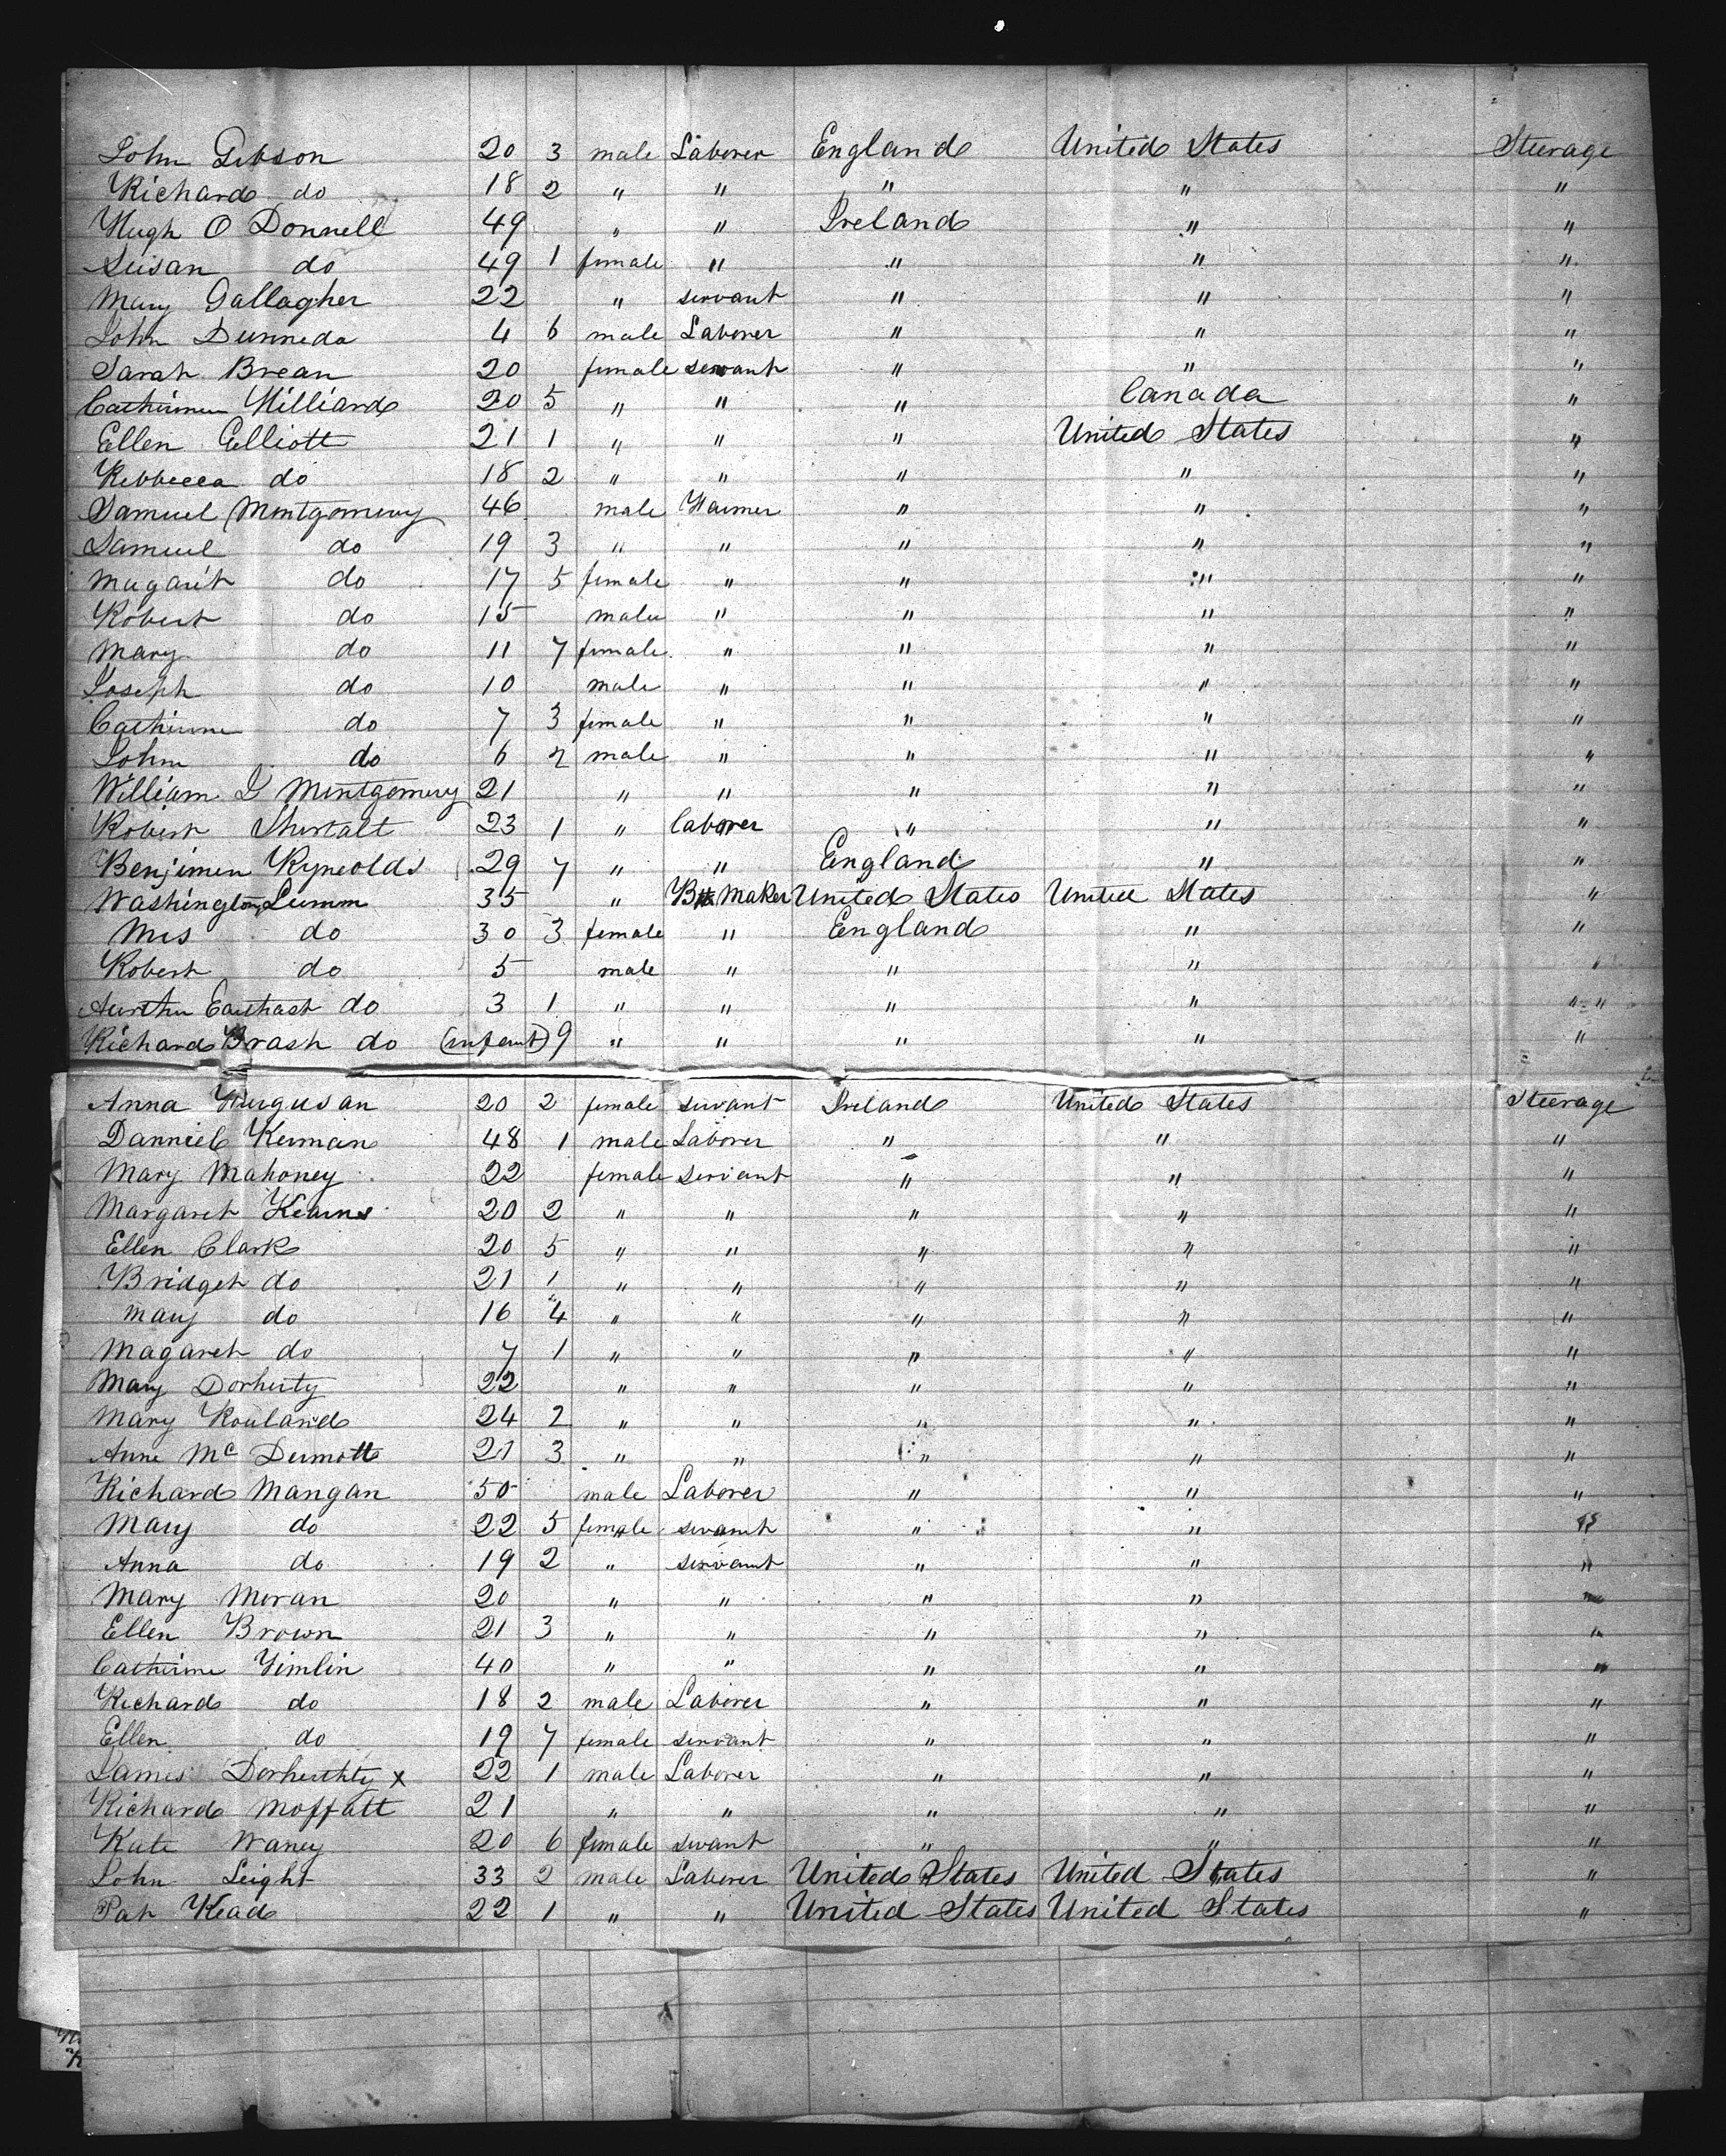 John Gibson 20 3 male Laborer England United States Steerage
Richard do 18 2 " " " " "
Hugh O Donnell 49 " " Ireland " "
Susan do 49 1 female " " " "
Mary Gallagher 22 " servant " " "
John Dunneda 4 6 male Laborer " " "
Sarah Brean 20 female servant " " "
Catherineen Hilliard 20 5 " " " Canada "
Ellen Elliott 21 1 " " " United States "
Rebbecca do 18 2 " " " " "
Samuel Montgomery 46 male Farmer " " "
Samuel do 19 3 " " " " "
Magarit do 17 5 female " " " "
Robert do 15 male " " " "
Mary do 11 7 female " " " "
Joseph do 10 male " " " "
Catherine do 7 3 female " " " "
John do 6 2 male " " " "
William J Montgomery 21 " " " " "
Robert 23 1 " laborer " " "
Benjimen Ryneolds 29 7 " " England " "
Washington Lumm 35 " Maker United States United States "
Mrs do 30 3 female " England " "
Robert do 5 male " " " "
do 3 1 " " " " " "
Richard Brash do (infant) 9 " " " " "
Anna Furgusan 20 2 female servant Ireland United States Steerage
Danniel Kernan 48 1 male Laborer " " "
Mary Mahoney 22 female servant " " "
Margaret Kearns 20 2 " " " " "
Ellen Clark 20 5 " " " " "
Bridget do 21 1 " " " " "
Mary do 16 4 " " " " "
Magaret do 7 1 " " " " "
Mary Dorherty 22 " " " " "
Mary Rouland 24 2 " " " " "
Anne Mc Dermott 21 3 " " " " "
Richard Mangan 50 male Laborer " " "
Mary do 22 5 female servant " " "
Anna do 19 2 " servant " " "
Mary Moran 20 " " " " "
Ellen Brown 21 3 " " " " "
Catherine Timlin 40 " " " " "
Richard do 18 2 male Laborer " " "
Ellen do 19 7 female servant " " "
James Dorherthty x 22 1 male Laborer " " "
Richard Moffatt 21 " " " " "
Kate Waney 20 6 female servant " " "
John Leight 33 2 male Laborer United States United States "
Pat Kead 22 1 " " United States United States "